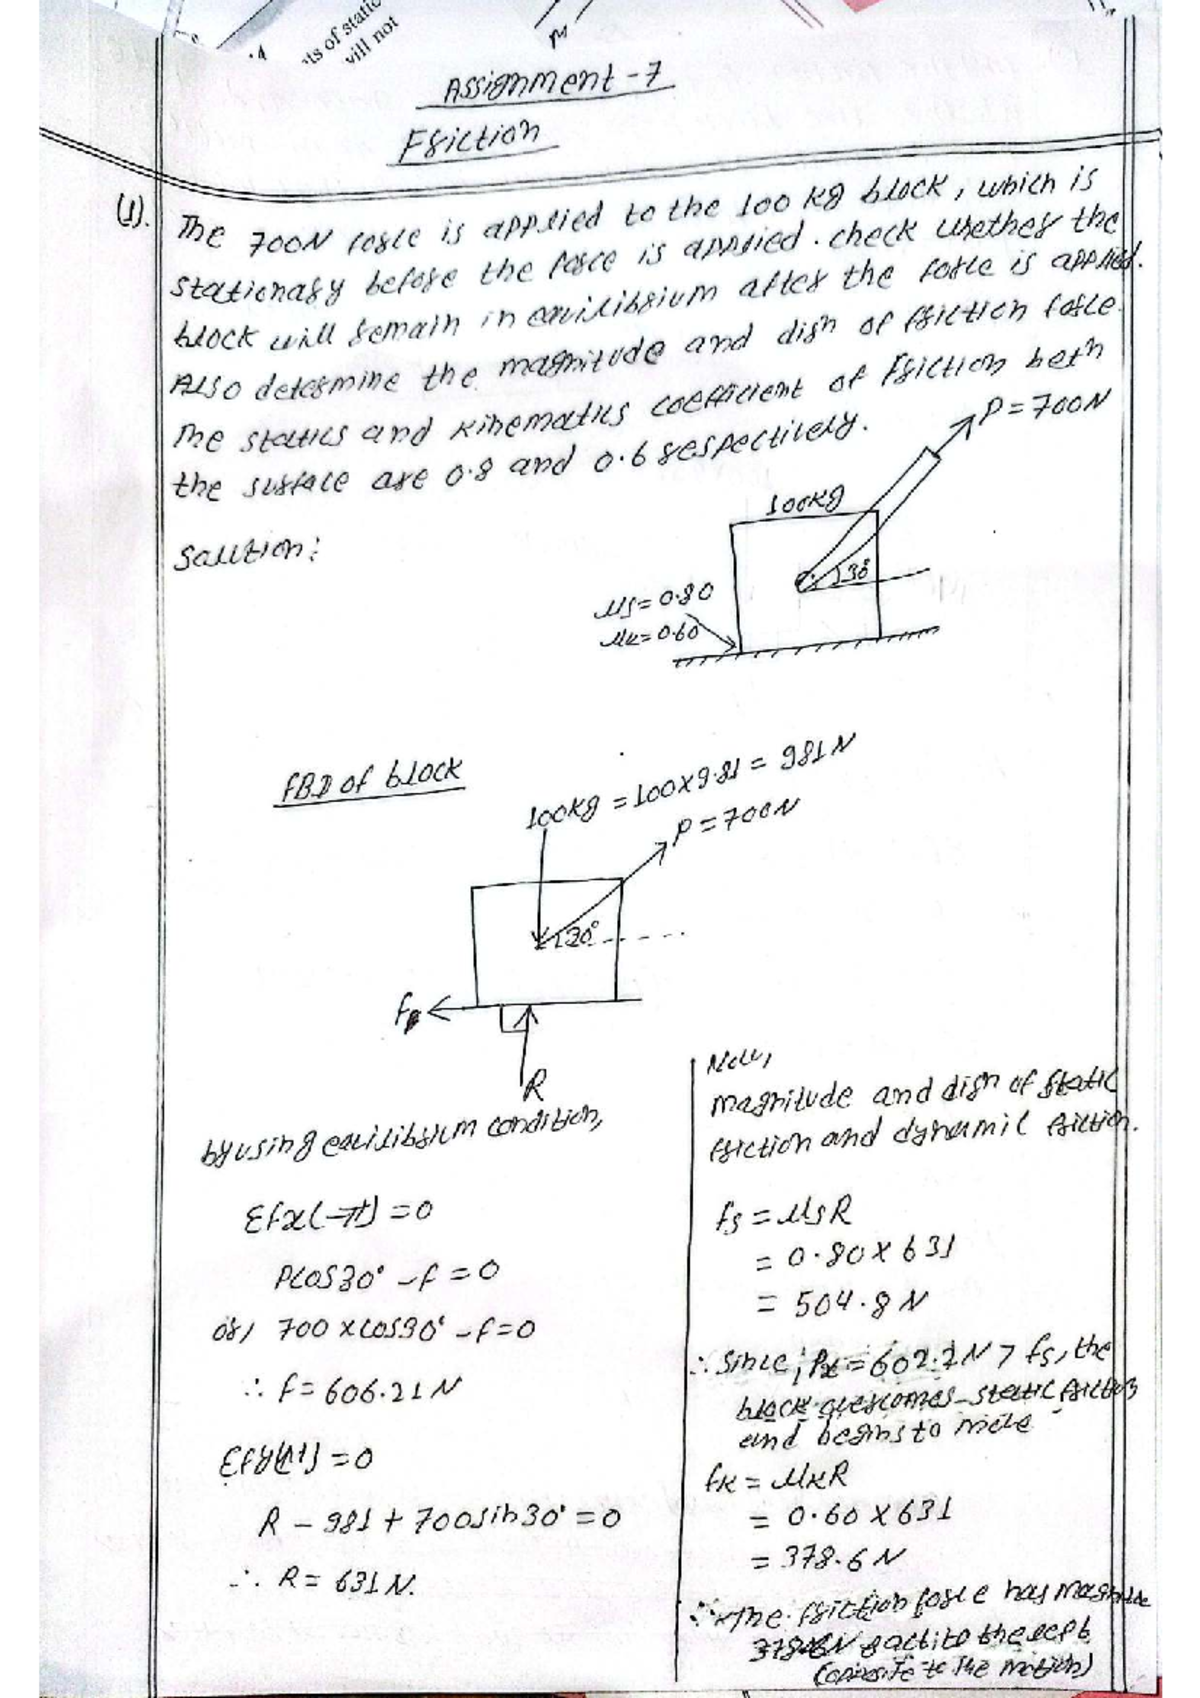 ts of static
will not
Assignment-7
Friction
(1). The 700N force is applied to the 100 kg block, which is
stationary before the force is applied. check whether the
block will remain in equilibrium after the force is applied.
Also determine the magnitude and dirn of friction force.
The statics and kinematics coefficient of friction betn
the surface are 0.8 and 0.6 respectively.
P=700N
100kg
30°
Solution:
μs=0.80
μk=0.60
F.B.D of block
100kg = 100×9.81 = 981N
P=700N
30°
R
by using equilibrium condition,
Σfx(→+)=0
Pcos30° -f=0
or, 700 xcos30° -f=0
∴ f= 606.21N
=0
R - 981 + 700sin30° =0
∴ R= 631N.
Now,
magnitude and dirn of static
friction and dynamic friction.
fs = μsR
= 0.80 x 631
= 504.8 N
∴ Since, Px=602.2N > fs, the
block overcomes static friction
and begins to move
fk = μkR
= 0.60 x 631
= 378.6 N
∴ The friction force has magnitude
378.6N & acts to the left
(opposite to the motion)